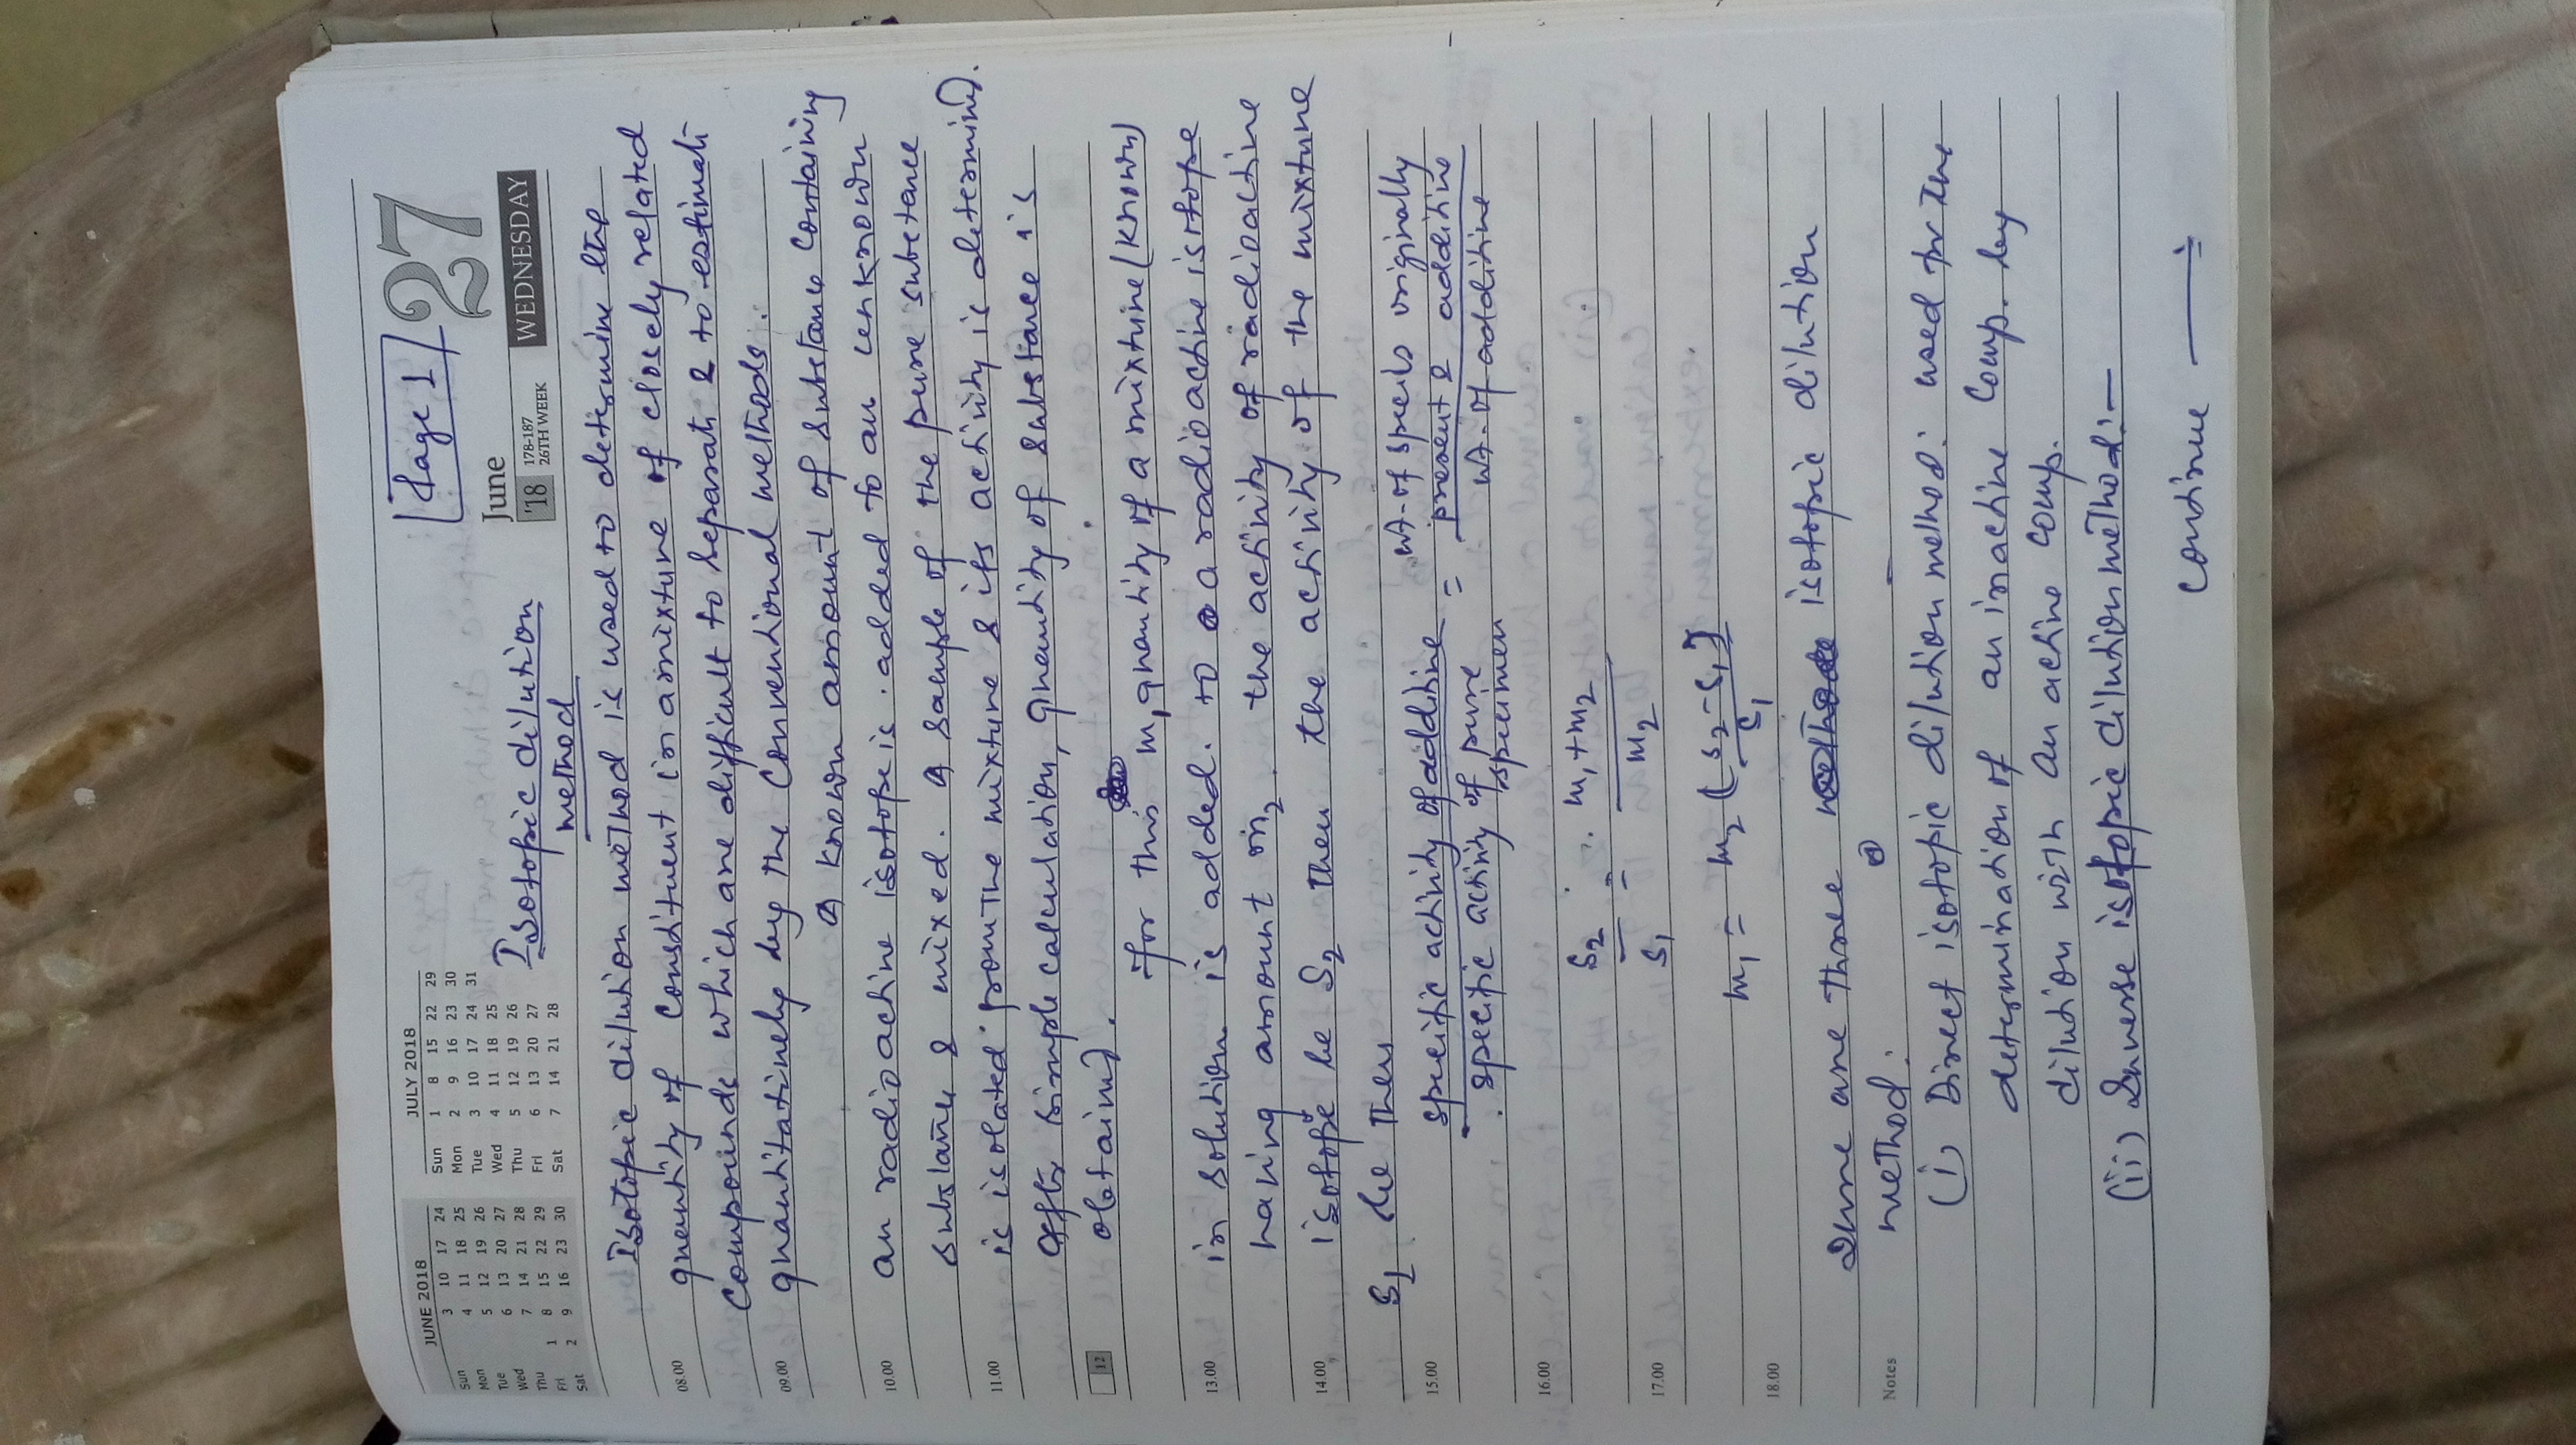 Page 1
27
June
'18
178-187
26TH WEEK
WEDNESDAY
JUNE 2018
Sun 3 10 17 24
Mon 4 11 18 25
Tue 5 12 19 26
Wed 6 13 20 27
Thu 7 14 21 28
Fri 1 8 15 22 29
Sat 2 9 16 23 30
JULY 2018
Sun 1 8 15 22 29
Mon 2 9 16 23 30
Tue 3 10 17 24 31
Wed 4 11 18 25
Thu 5 12 19 26
Fri 6 13 20 27
Sat 7 14 21 28
Isotopic dilution
method
Isotopic dilution method is used to determine the
quantity of constituent in a mixture of closely related
08.00
compounds which are difficult to separate & to estimate
quantitatively by the conventional methods.
09.00
a known amount of substance containing
an radioactive isotope is added to an unknown
10.00
substance & mixed. a sample of the pure substance
is isolated from the mixture & its activity is determined.
11.00
After simple calculation, quantity of substance is
obtained.
12
for this m₁ quantity of a mixture (known)
in solution is added. to a radioactive isotope
13.00
having amount m₂. the activity of radioactive
isotope be S₂ then the activity of the mixture
14.00
S₁ be then
specific activity of additive = wt. of specis originally present & additive
15.00
specific activity of pure specimen wt. of additive
S₂/S₁ = m₁+m₂/m₂
16.00
17.00
m₁ = m₂ [S₂-S₁/S₁]
18.00
There are three isotopic dilution
method.
Notes
(i) Direct isotopic dilution method: used for the
determination of an inactive comp. by
dilution with an active comp.
(ii) Inverse isotopic dilution method:—
continue